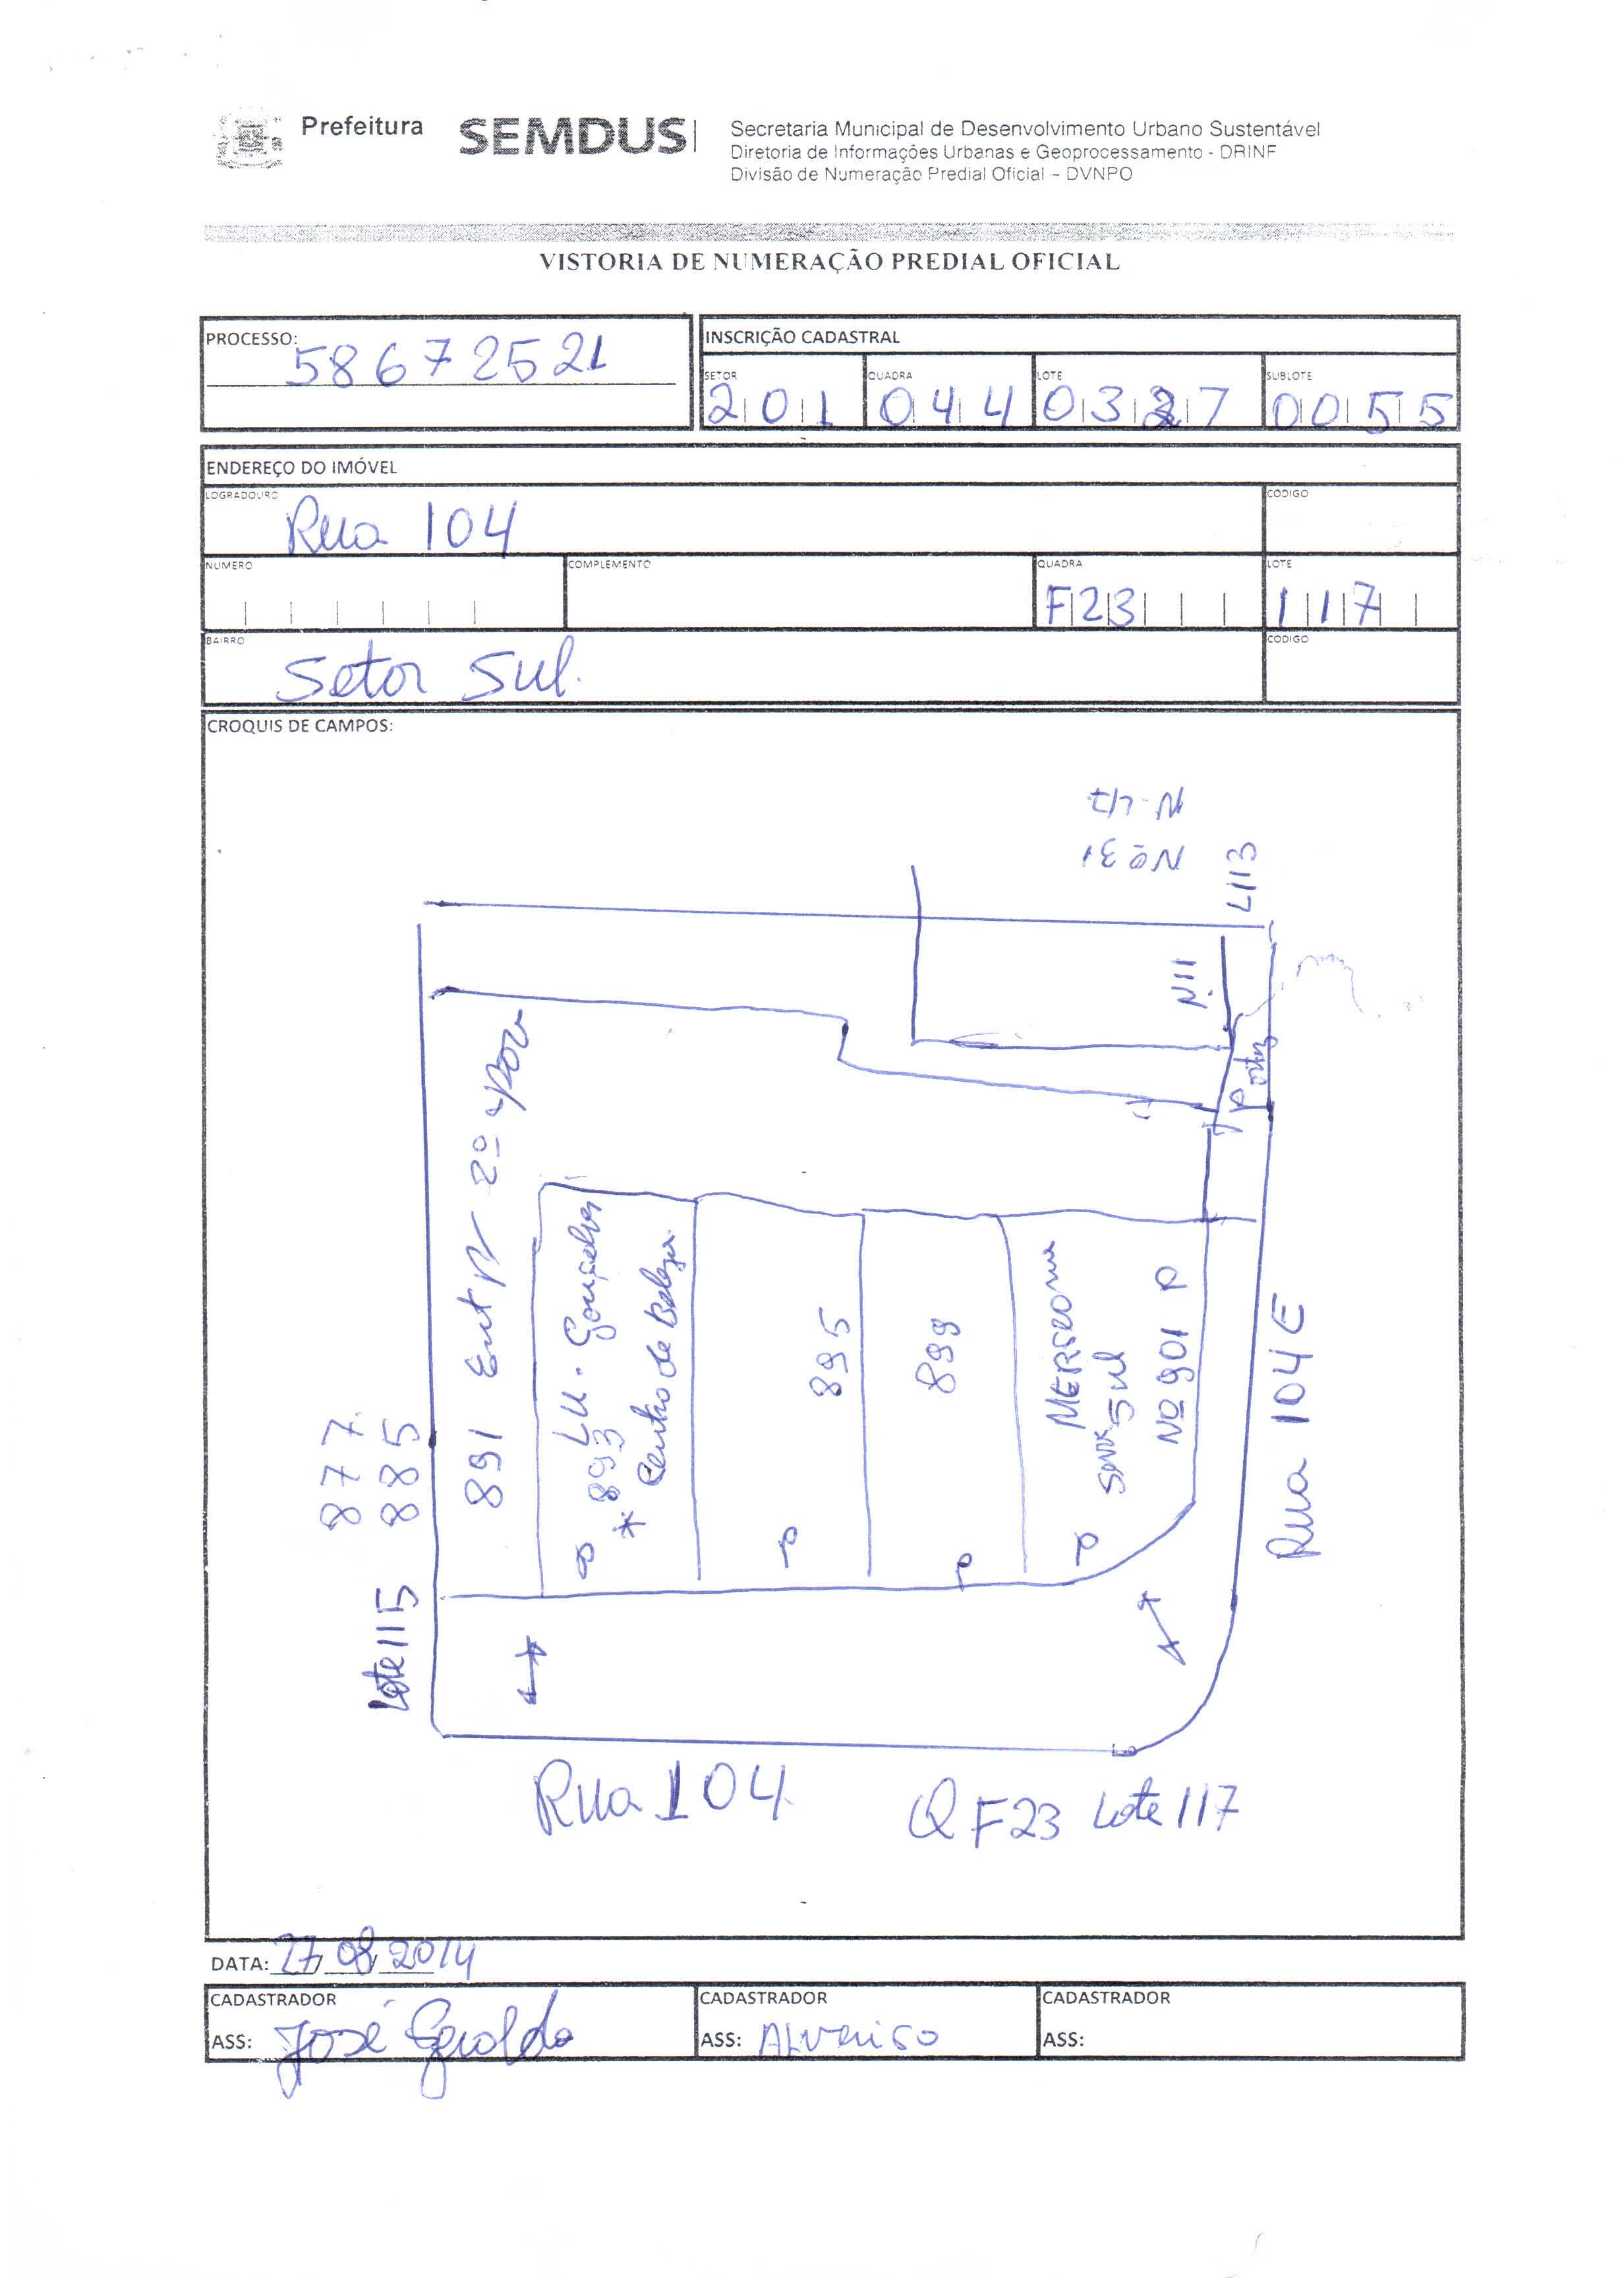 Prefeitura
SEMDUS
Secretaria Municipal de Desenvolvimento Urbano Sustentável
Diretoria de Informações Urbanas e Geoprocessamento - DRINF
Divisão de Numeração Predial Oficial – DVNPO
VISTORIA DE NUMERAÇÃO PREDIAL OFICIAL
PROCESSO:
58672521
INSCRIÇÃO CADASTRAL
SETOR QUADRA LOTE SUBLOTE
201 044 0327 0055
ENDEREÇO DO IMÓVEL
LOGRADOURO CODIGO
Rua 104
NUMERO COMPLEMENTO QUADRA LOTE
F23 117
BAIRRO CODIGO
Setor Sul.
CROQUIS DE CAMPOS:
Nº 31
L113
N. 11
891 2º
893 LU.
* Centro de
895
899
Sul
Nº 901
877
885
Lote 115
Rua 104 E
Rua 104
Q F23 Lote 117
DATA: 27/08/2014
CADASTRADOR CADASTRADOR CADASTRADOR
ASS: José Geraldo ASS: ASS: